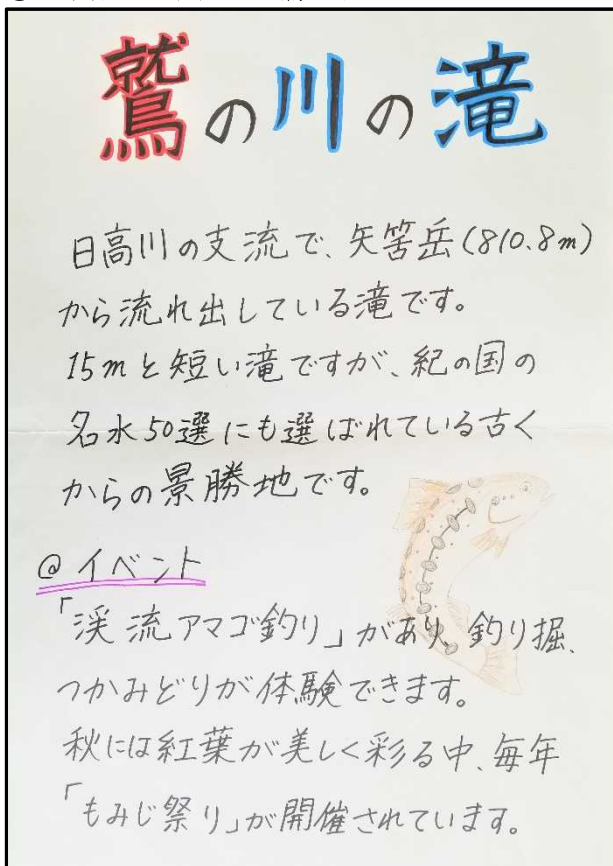 鷲の川の滝
日高川の支流で、矢筈岳(810.8m)
から流れ出している滝です。
15mと短い滝ですが、紀の国の
名水50選にも選ばれている古く
からの景勝地です。
@イベント
「渓流アマゴ釣り」があり、釣り掘、
つかみどりが体験できます。
秋には紅葉が美しく彩る中、毎年
「もみじ祭り」が開催されています。